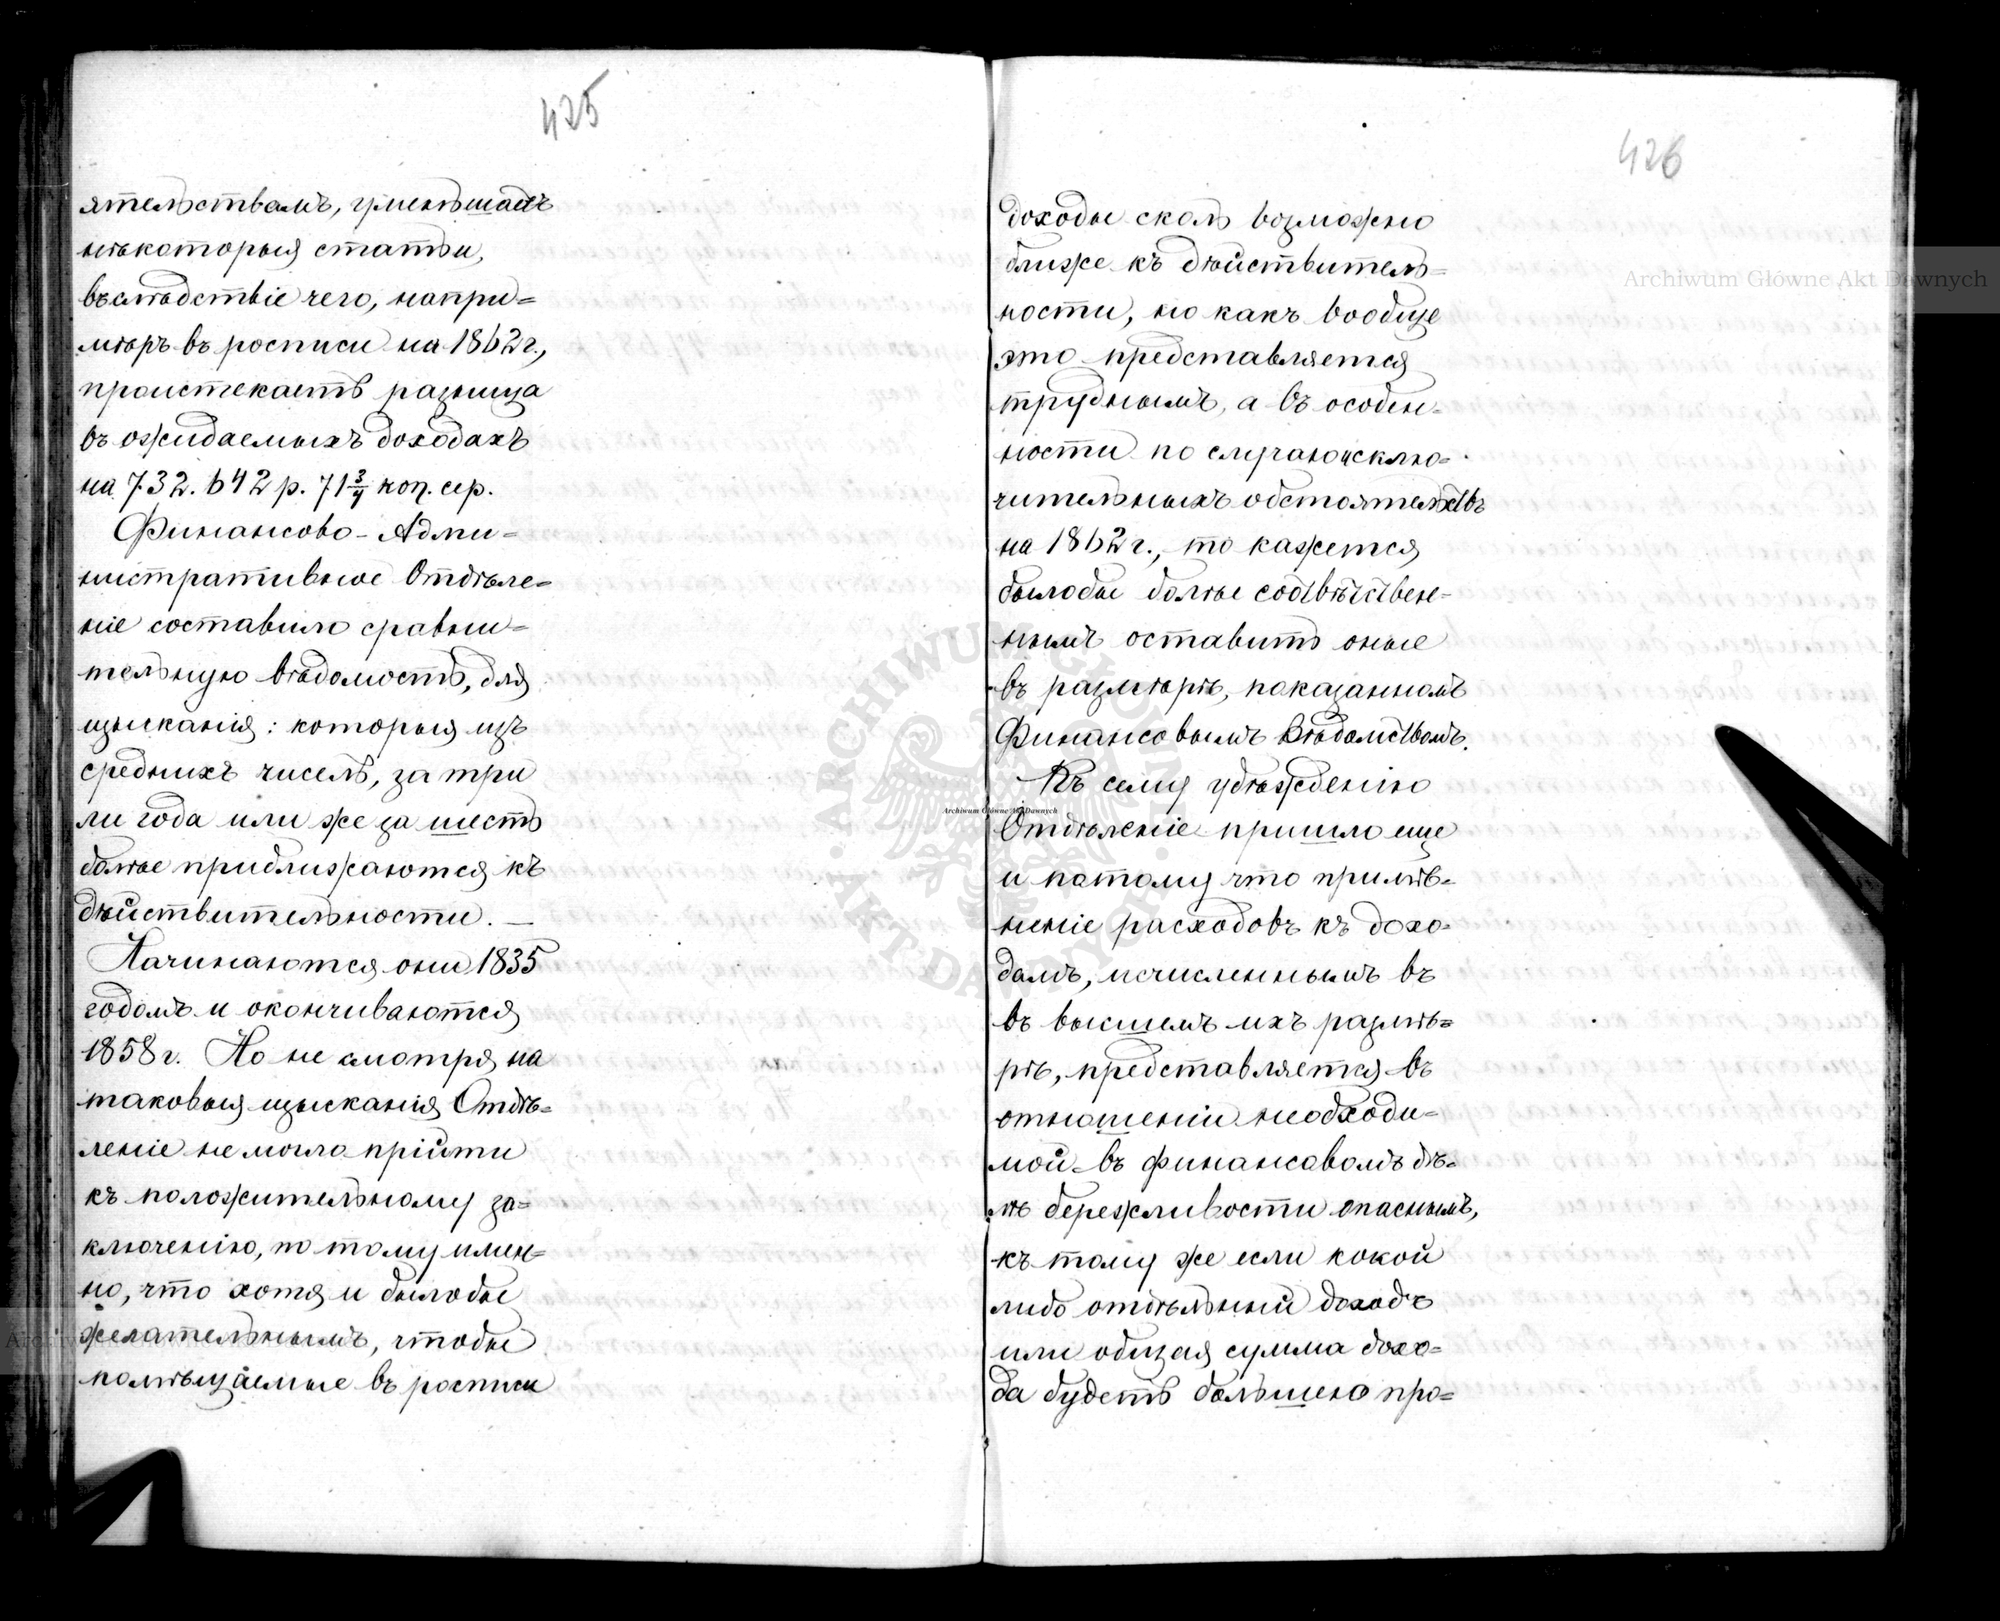 425
ятельствамъ, уменьшаетъ
нѣкоторыя статьи,
вслѣдствіе чего, напри=
мѣръ въ росписи на 1862 г.,
проистекаетъ разница
въ ожидаемыхъ доходахъ
на 732.642 р. 71 3/4 коп. сер.
Финансово-Адми=
нистративное Отдѣле=
ніе составило сравни=
тельную вѣдомость, для
изысканія: которыя изъ
среднихъ чиселъ, за три
ли года или же за шесть
болѣе приближаются къ
дѣйствительности. —
Начинаются они 1835
годомъ и окончиваются
1858 г. Но не смотря на
таковыя изысканія Отдѣ=
леніе не могло прійти
къ положительному за=
ключенію, по тому имен=
но, что хотя и былобы
желательнымъ, чтобы
помѣщаемые въ росписи
426
доходы сколь возможно
ближе къ дѣйствитель=
ности, но какъ вообще
это представляется
труднымъ, а въ особен=
ности по случаю исклю=
чительныхъ обстоятельствъ
на 1862 г., то кажется
былобы болѣе соотвѣтствен=
нымъ оставить оные
въ размѣрѣ, показанномъ
Финансовымъ Вѣдомствомъ.
Къ сему убѣжденію
Отдѣленіе пришло еще
и потому что примѣ=
неніе расходовъ къ дохо=
дамъ, исчисленнымъ въ
въ высшемъ ихъ размѣ=
рѣ, представляется въ
отношеніи необходи=
мой въ финансовомъ дѣ=
лѣ бережливости опаснымъ,
къ тому же если кокой
либо отдѣльный доходъ
или общая сумма дохо=
да будетъ большею про=
Archiwum Główne Akt Dawnych
ARCHIWUM GŁÓWNE AKT DAWNYCH
Archiwum Główne Akt Dawnych